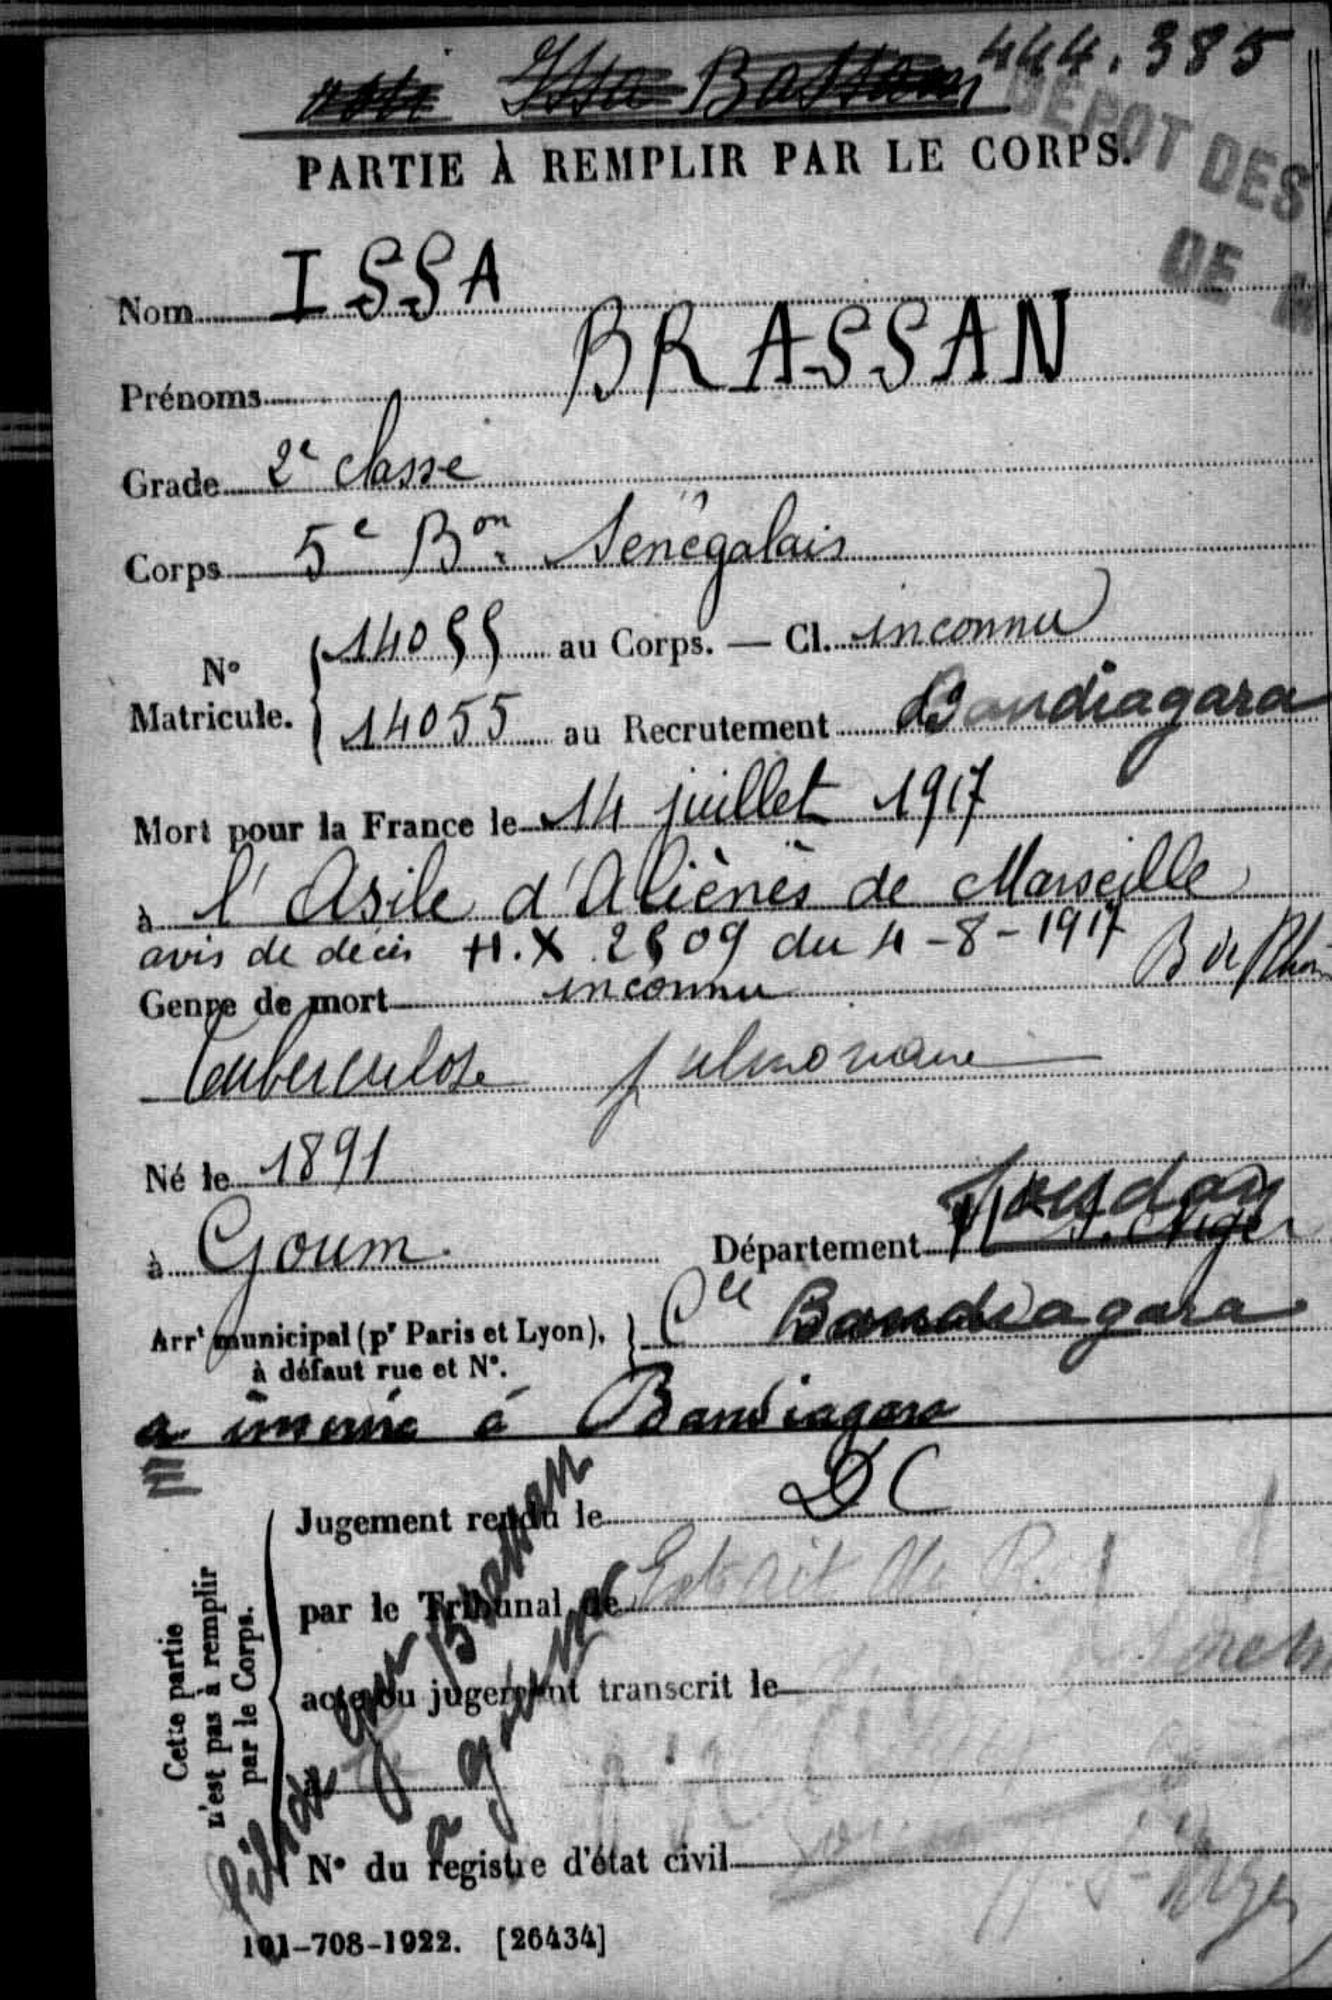 444.385
Issa
DÉPOT DES
DE
PARTIE À REMPLIR PAR LE CORPS.
Nom ISSA
Prénoms BRASSAN
Grade 2e classe
Corps 5e Bon Sénégalais
N° Matricule. 14055 au Corps. — Cl. inconnu
14055 au Recrutement Bandiagara
Mort pour la France le 14 juillet 1917
à l'Asile d'Aliénés de Marseille
avis de décès H.X 2609 du 4-8-1917 B du Rhône
Genre de mort inconnu
Tuberculose pulmonaire
Né le 1891
à Goum Département Soudan Niger
Arrt municipal (pr Paris et Lyon), à défaut rue et N°. Cle Bandiagara
à Bandiagara
Cette partie n'est pas à remplir par le Corps.
Jugement rendu le DC
par le Tribunal de Extrait
acte ou jugement transcrit le
N° du registre d'état civil
Brassan
101-708-1922. [26434]